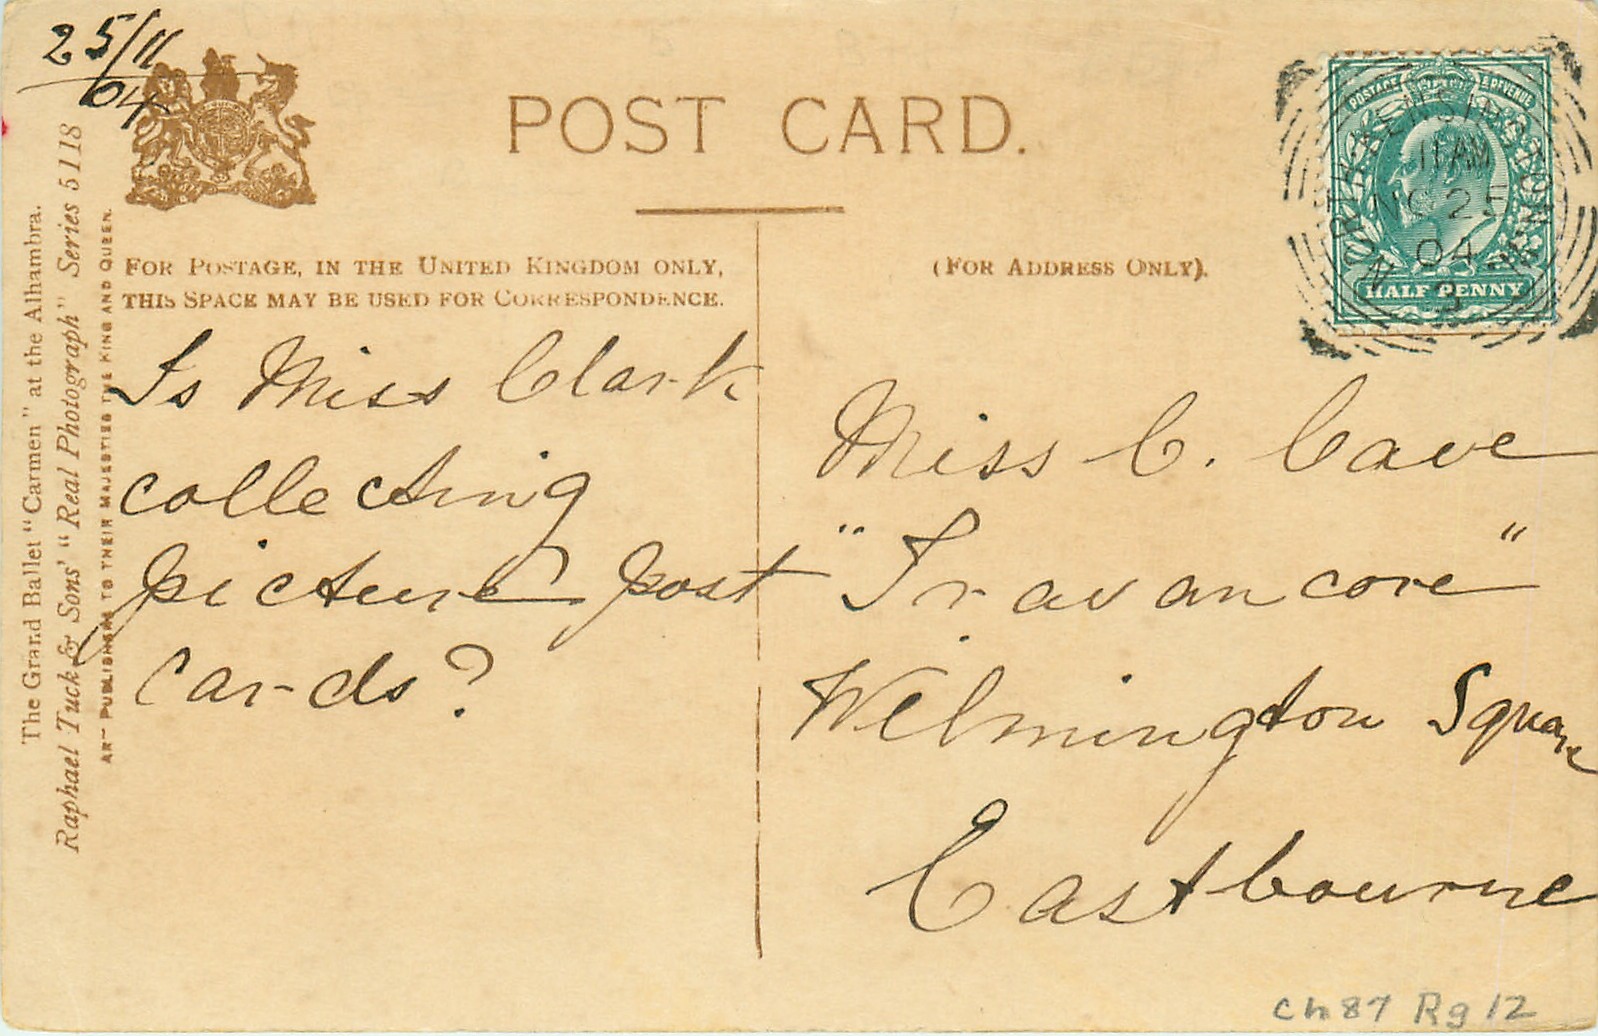 25/11
04
POST CARD.
The Grand Ballet "Carmen" at the Alhambra.
Raphael Tuck & Sons' "Real Photograph" Series 5118
ART PUBLISHERS TO THEIR MAJESTIES THE KING AND QUEEN.
FOR POSTAGE, IN THE UNITED KINGDOM ONLY,
THIS SPACE MAY BE USED FOR CORRESPONDENCE.
(FOR ADDRESS ONLY).
POSTAGE & REVENUE
HALF PENNY
NORTH KENSINGTON
11 AM
NO 25
04
3
Is Miss Clark
collecting
picture post
cards?
Miss C. Cave
"Travancore"
Wilmington Square
Eastbourne
Ch87 Rg12